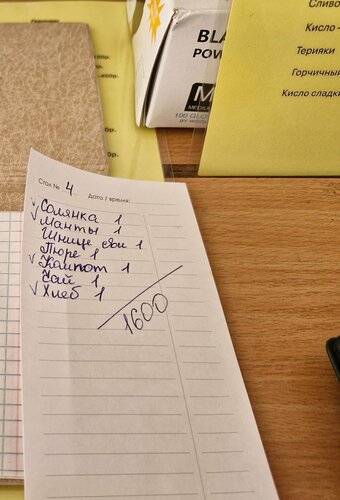 Сливо
Кисло -
Терияки
Горчичный
Кисло сладки
BLA
POW
M
MEDIUM
100 GLO
50р.
.450р.
0р.
Стол № 4 Дата / время:
√ Солянка 1
√ Манты 1
Шнице сви 1
Пюре 1
√ Компот 1
Чай 1
√ Хлеб 1
1600